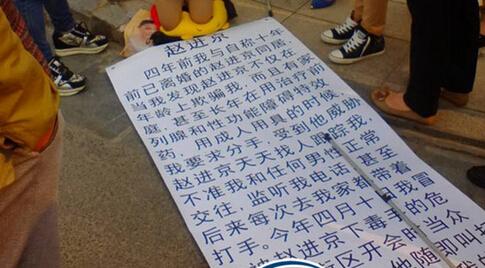 赵进京
四年前我与自称十年
前已离婚的赵进京同居,
当我发现赵进京不仅在
年龄上欺骗我,而且有家
庭,甚至长年在用治疗前
列腺和性功能障碍特效
药,用成人用具的时候
我要求分手,受到他威胁
赵进京天天找人跟踪我,
不准我和任何男性正常
交往,监听我电话 甚至
后来每次去我家都带着
打手。今年四月十 日我冒
被赵进京下毒手的危
区开会时当众
他随即叫打